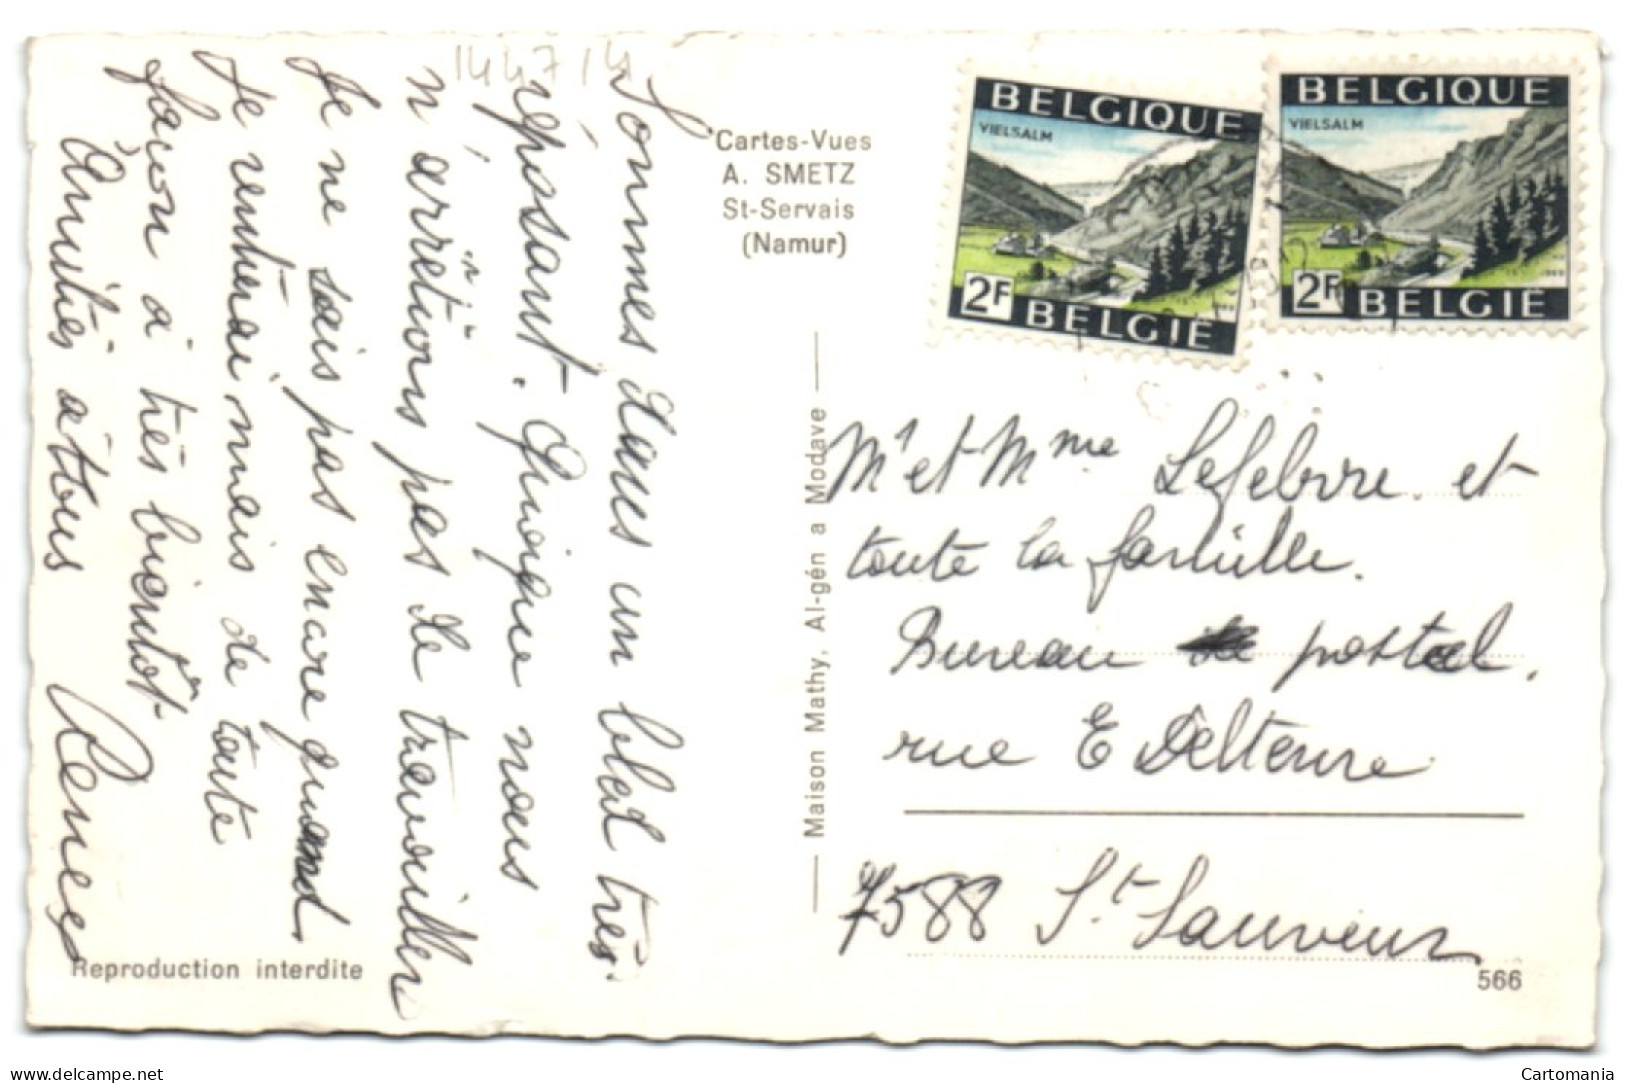 144714
Sommes dans un bled très
réposant. Quoique nous
n'arrêtions pas de travailler
Je ne sais pas encore quand
Je rentrerai mais de toute
façon à très bientôt
Amitiés à tous
Cartes-Vues
A. SMETZ
St-Servais
(Namur)
Maison Mathy, Al-gén a Modave
BELGIQUE
VIELSALM
2F
BELGIË
BELGIQUE
VIELSALM
2F
BELGIË
Mr et Mme Lefebvre et
toute la famille.
Bureau postal.
rue E Delteure
7588 St Sauveur
Reproduction interdite
566
delcampe.net
Cartomania